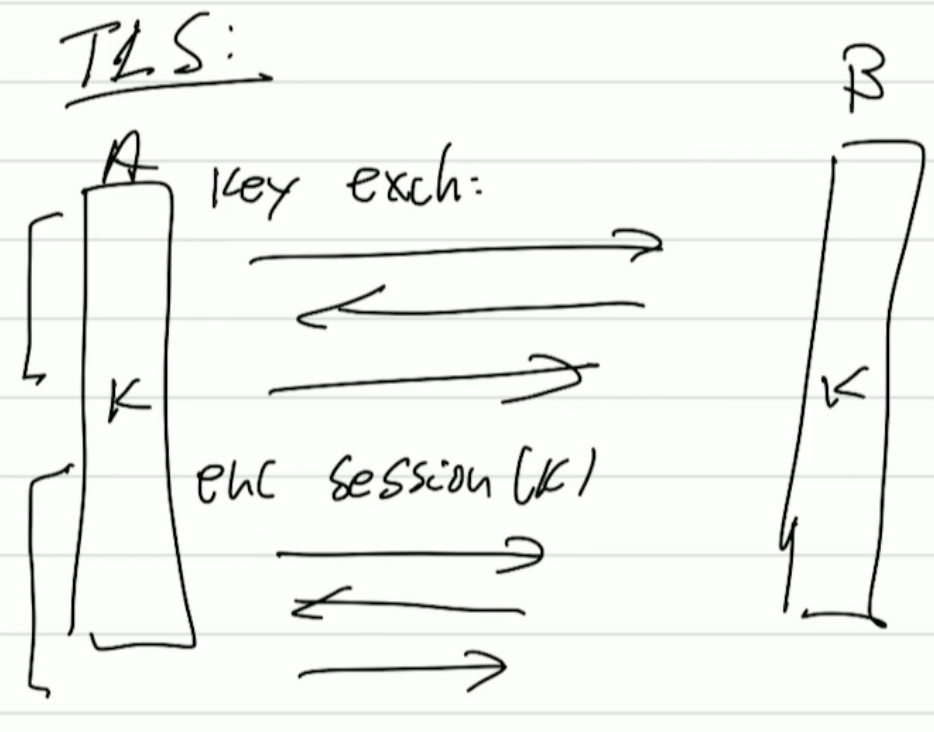 TLS:
B
A
Key exch:
K
K
enc session (K)